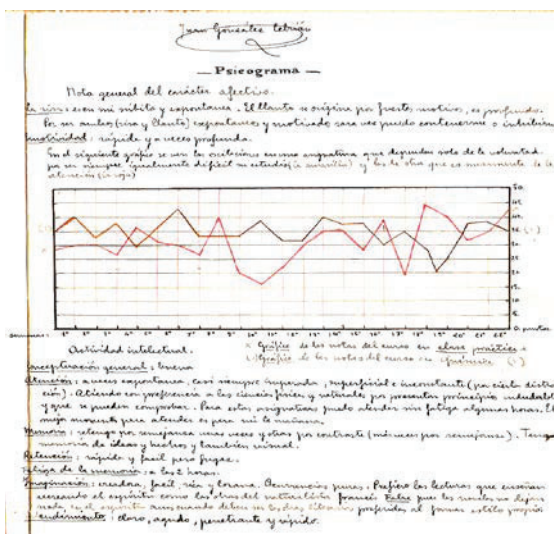 Juan González Cebrián
— Psicograma —
Nota general del carácter afectivo.
La risa: es en mi súbita y expontanea. El llanto se origina por fuertes motivos, es profundo.
Por ser ambos (risa y llanto) expontaneos y motivados rara vez puedo contenerme o inhibirme
Emotividad: rápida y a veces profunda.
En el siguiente gráfico se ven las oscilaciones en una asignatura que dependen solo de la voluntad
por ser siempre igualmente difícil su estudio y las de otra que es meramente de
atención (en rojo)
50
45
40
35
30
25
20
15
10
5
0. puntos
semanas: 1ª 2ª 3ª 4ª 5ª 6ª 7ª 8ª 9ª 10ª 11ª 12ª 13ª 14ª 15ª 16ª 17ª 18ª 19ª 20ª 21ª 22ª
Actividad intelectual.
Gráfico de las notas del curso en clase práctica
Gráfico de las notas del curso en química
Concepturación general: buena
Atención: a veces expontanea, casi siempre superficial e inconstante (por cierta
ción). Atiendo con preferencia a las ciencias físicas y naturales por presentar principios indudables
y que se pueden comprobar. Para estas asignaturas puedo atender sin fatiga algunas horas. El
mejor momento para atender es para mi la mañana.
Memoria: retengo por semejanza unas veces y otras por contraste (más veces por semejanza). Tengo
memoria de ideas y hechos y tambien visual.
Retención: rápida y facil pero fugaz.
Fatiga de la memoria: a las 2 horas.
Imaginación: creadora, facil, rica y lozana. Ocurrencias pocas. Prefiero las lecturas que enseñan
recreando el espíritu como las obras del naturalista francés Fabre pues las novelas no dejan
nada en el espíritu aun cuando deben ser las obras literarias preferidas al formar estilo propio
Entendimiento: claro, agudo, penetrante y rápido.